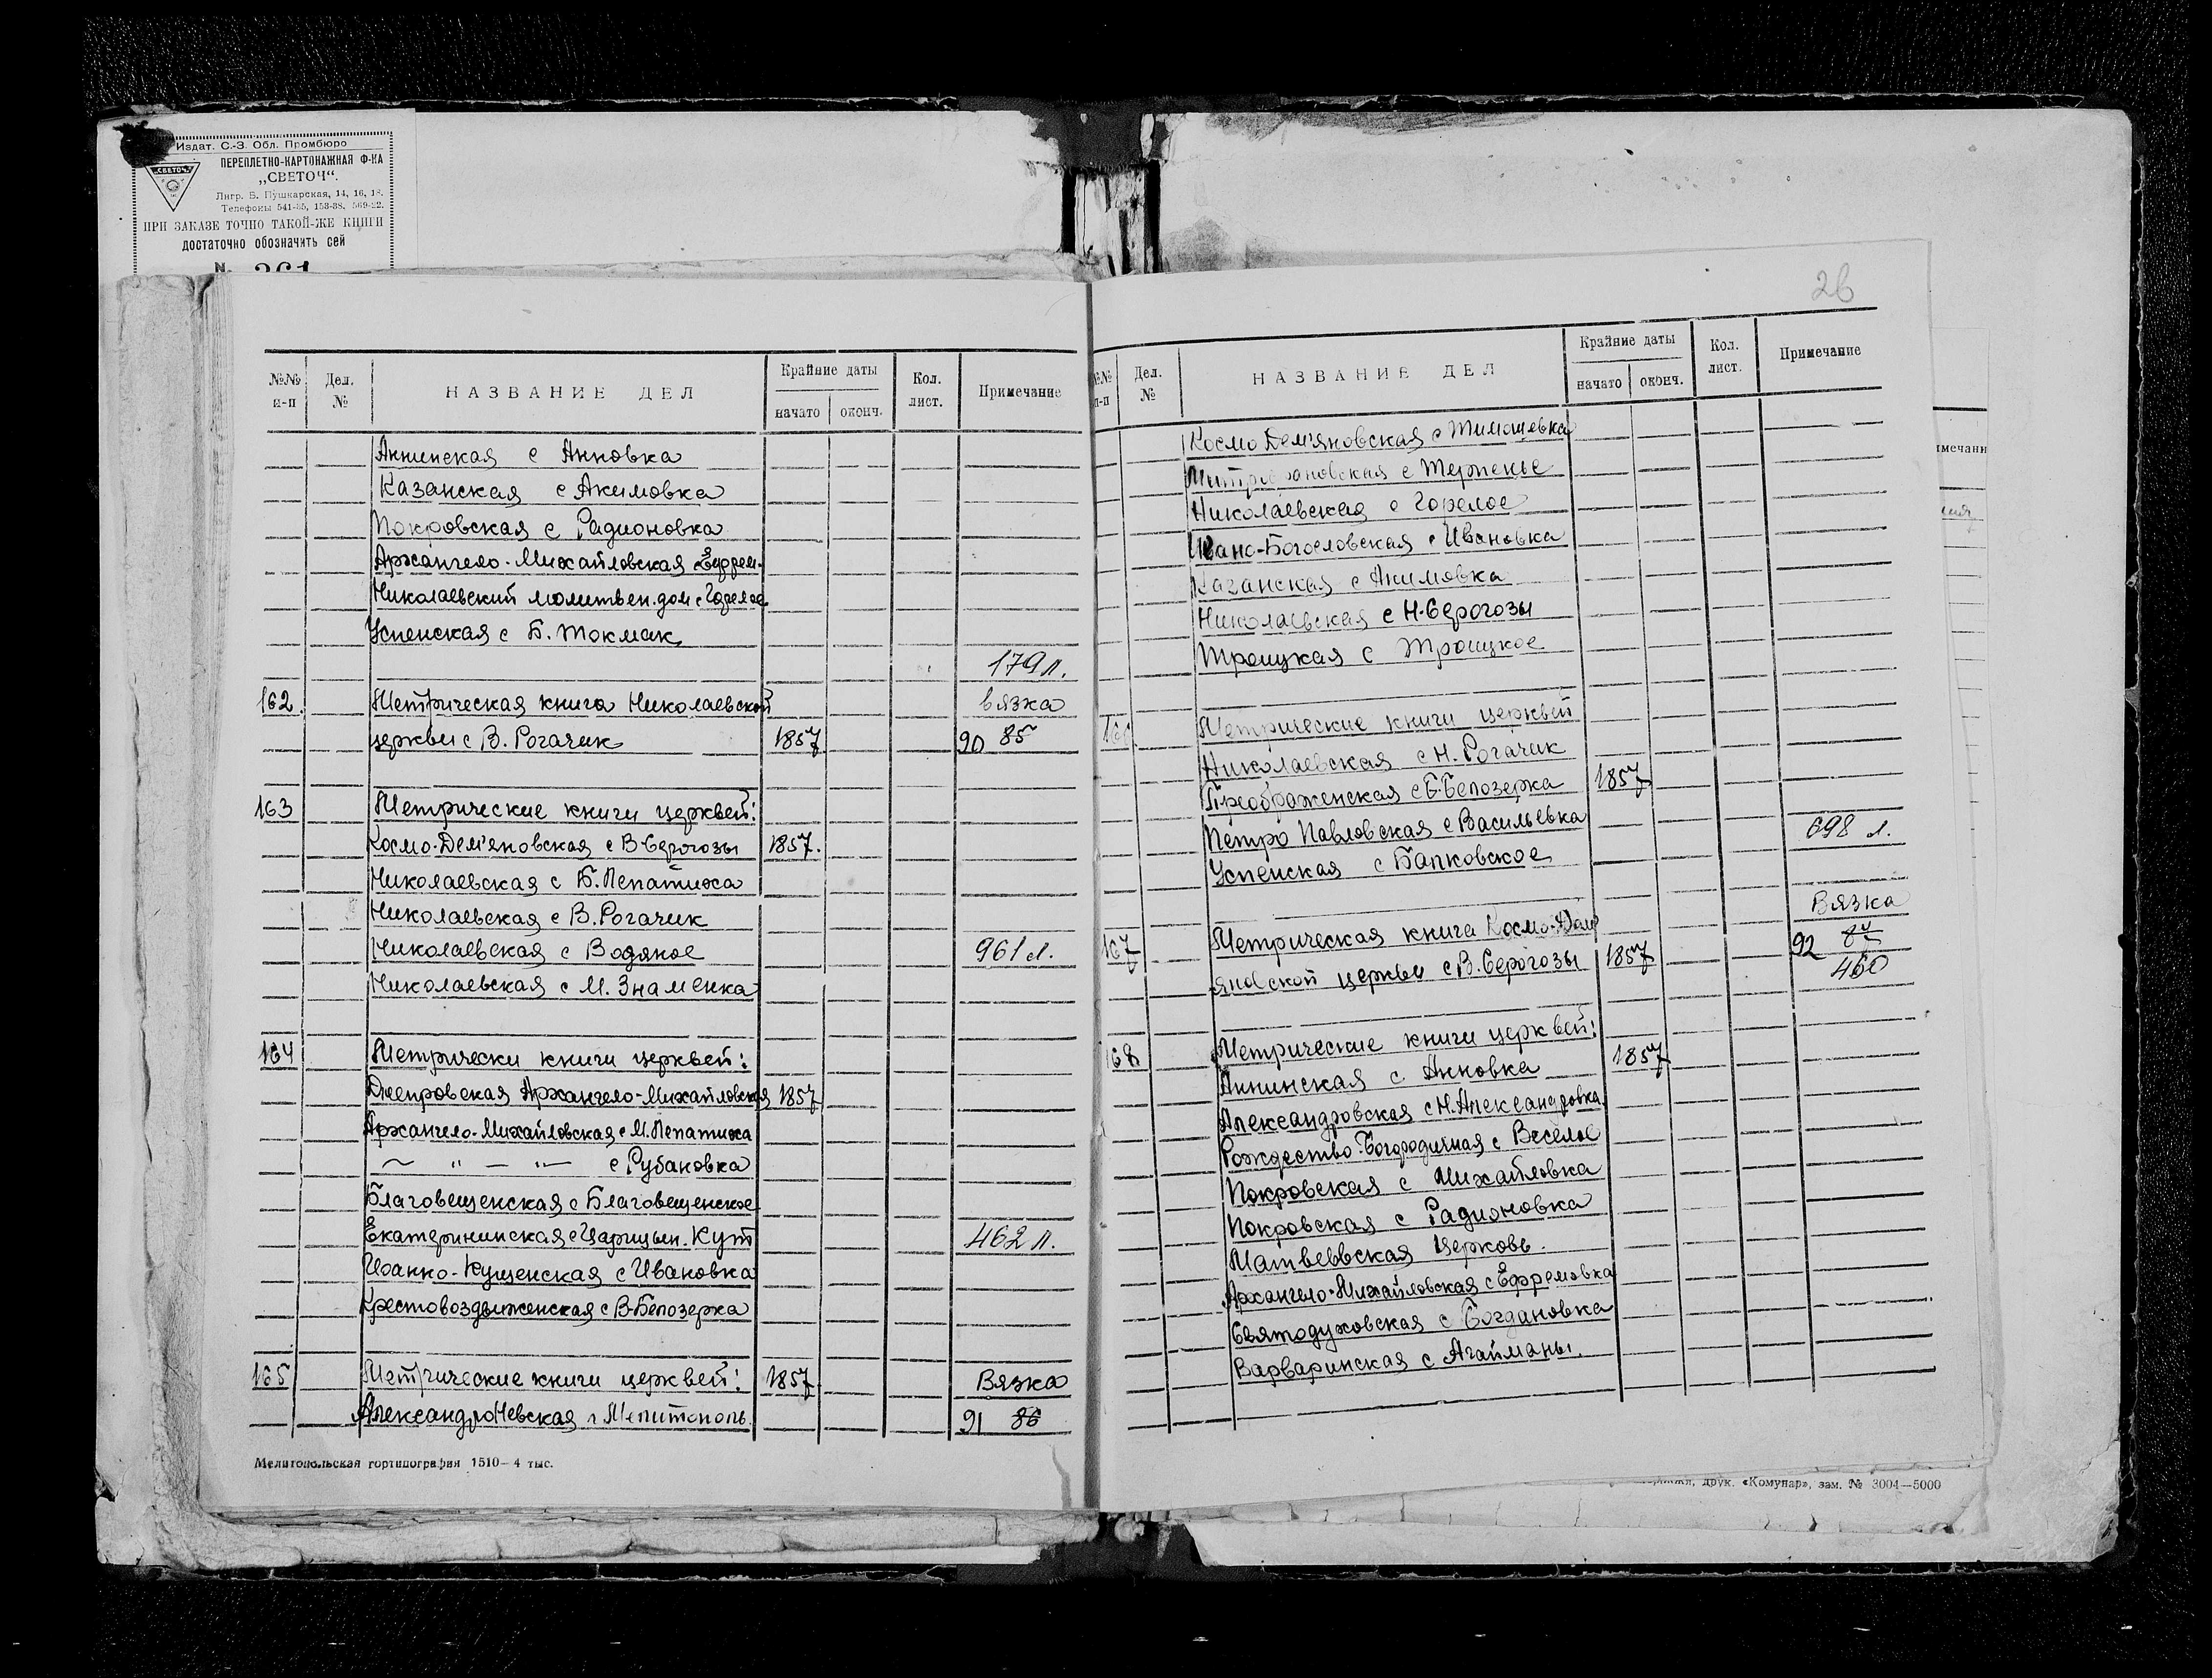 Издат. С.-З. Обл. Промбюро
ПЕРЕПЛЕТНО-КАРТОНАЖНАЯ Ф-КА
„СВЕТОЧ“
„СВЕТОЧ“.
Лнгр. Б. Пушкарская, 14, 16, 18.
Телефоны 541-35, 153-38, 569-22.
ПРИ ЗАКАЗЕ ТОЧНО ТАКОЙ-ЖЕ КНИГИ
достаточно обозначить сей
N. 261
№№ п-п Дел. № НАЗВАНИЕ ДЕЛ Крайние даты начато оконч. Кол. лист. Примечание
Аннинская с Анновка
Казанская с Акимовка
Покровская с Радионовка
Архангело-Михайловская Ефрем.
Николаевский молитвен. дом с Горелое
Успенская с Б. Токмак
179 л.
162. Метрическая книга Николаевской вязка
церкви с В. Рогачик 1857 90 85
163 Метрические книги церквей:
Космо-Дем'яновская с В-Серогозы 1857.
Николаевская с Б. Лепатиха
Николаевская с В. Рогачик
Николаевская с Водяное 961 л.
Николаевская с М. Знаменка
164 Метрически книги церквей:
Днепровская Архангело-Михайловская 1857
Архангело-Михайловская с М. Лепатиха
~ " — " — с Рубановка
Благовещенская с Благовещенское
Екатерининская с Царицын. Кут 462 л.
Иоанно-Кущенская с Ивановка
Крестовоздвиженская с В-Белозерка
165 Метрические книги церквей: 1857 Вязка
АлександроНевская г Мелитополь. 91 86
Мелитопольская гортипография 1510—4 тыс.
26
№№ п-п Дел. № НАЗВАНИЕ ДЕЛ Крайние даты начато оконч. Кол. лист. Примечание
Космо Дем'яновская с Тимошевка
Митрофановская с Терпенье
Николаевская с Горелое
Ивано-Богословская с Ивановка
Казанская с Акимовка
Николаевская с Н-Серогозы
Троицкая с Троицкое
Метрические книги церквей
Николаевская с Н. Рогачик
Преображенская с Б-Белозерка 1857
Петро Павловская с Васильевка
Успенская с Балковское 698 л.
Вязка
167 Метрическая книга Космо-Дам
яновской церкви с В. Серогозы 1857 92 87
460
168 Метрические книги церквей:
Аннинская с Анновка 1857
Александровская с Н. Александровка
Рождество-Богородичная с Веселое
Покровская с Михайловка
Покровская с Радионовка
Матвеевская Церковь.
Архангело-Михайловская с Ефремовка
Святодуховская с Богдановка
Варваринская с Агайманы.
имечани
друк. «Комунар», зам. № 3004—5000